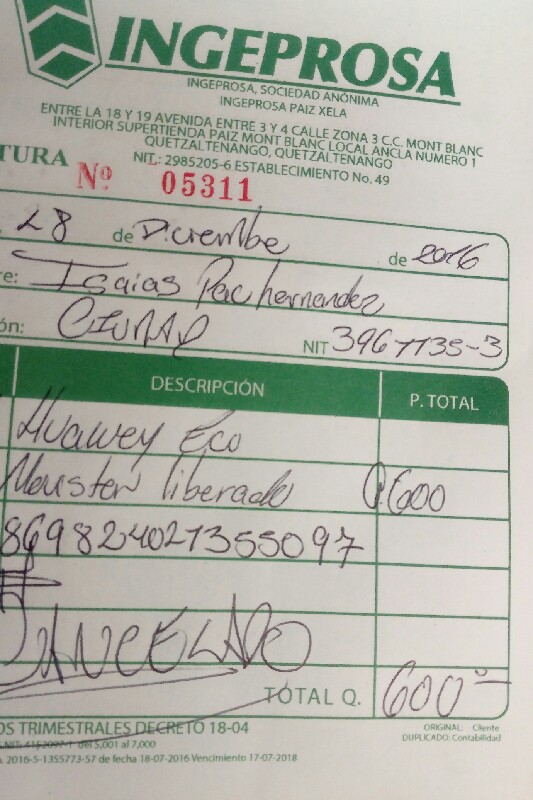 INGEPROSA
INGEPROSA, SOCIEDAD ANÓNIMA
INGEPROSA PAIZ XELA
ENTRE LA 18 Y 19 AVENIDA ENTRE 3 Y 4 CALLE ZONA 3 C.C. MONT BLANC
INTERIOR SUPERTIENDA PAIZ MONT BLANC LOCAL ANCLA NUMERO 1
QUETZALTENANGO, QUETZALTENANGO
NIT.: 2985205-6 ESTABLECIMIENTO No. 49
TURA Nº 05311
28 de Diciembre de 2016
re: Isaias Pac hernandez
ón: CIUDAD NIT 3967735-3
DESCRIPCIÓN P. TOTAL
Huawey Eco
Mouster liberado Q.600
869824021355097
CANCELADO
TOTAL Q. 600
OS TRIMESTRALES DECRETO 18-04
ORIGINAL: Cliente
DUPLICADO: Contabilidad
del 5,001 al 7,000
2016-5-1355773-57 de fecha 18-07-2016 Vencimiento 17-07-2018